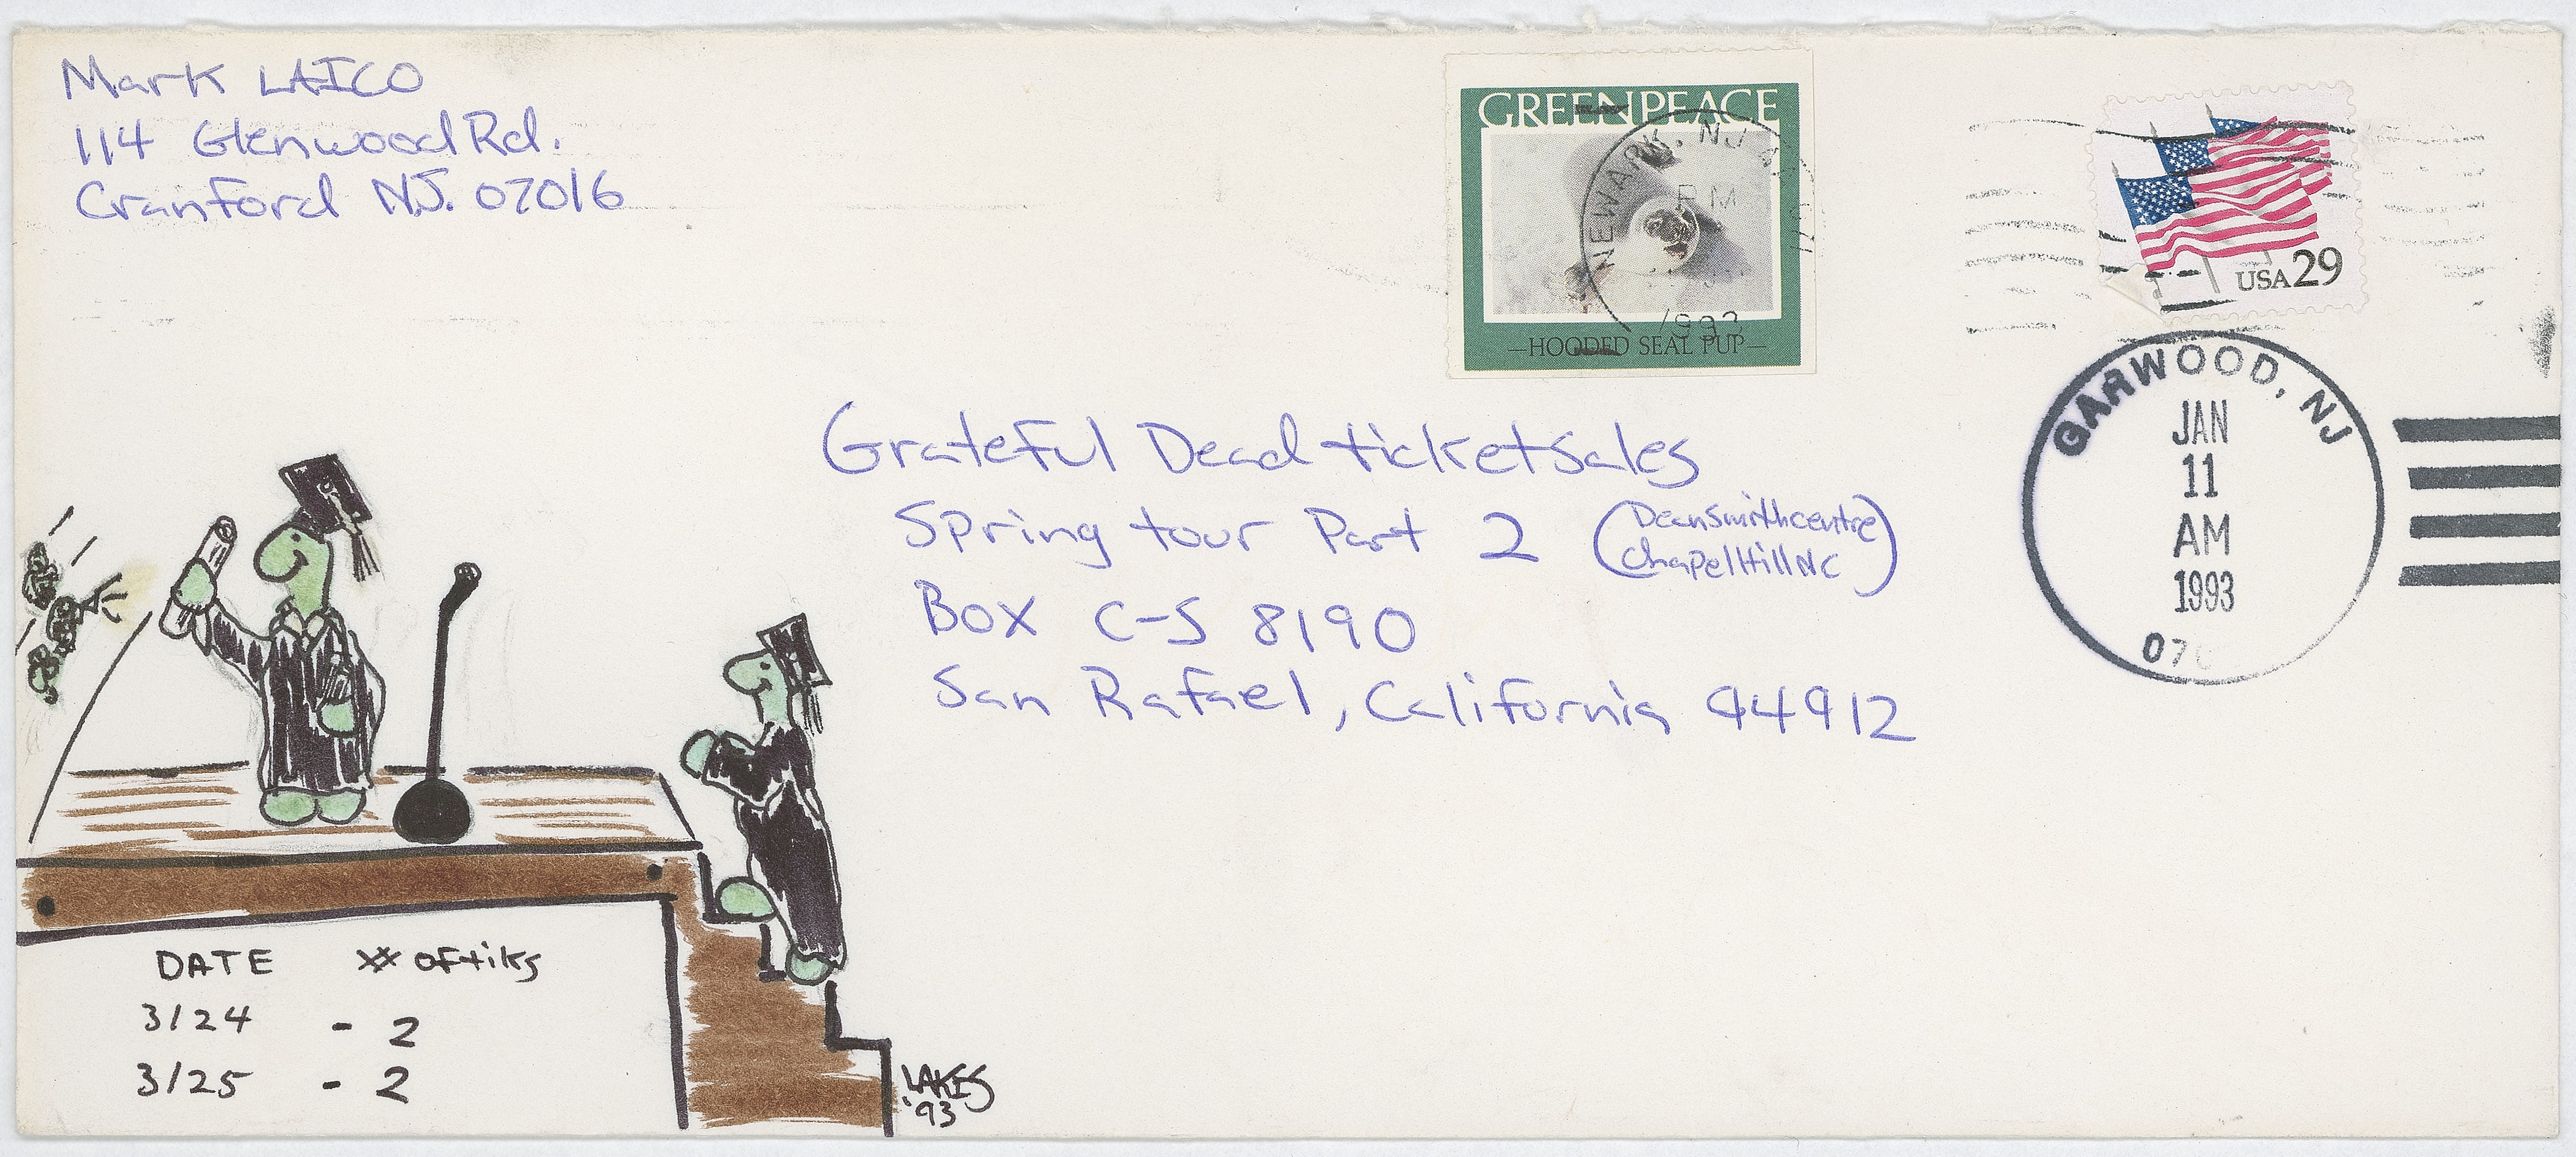 Mark LAICO
114 Glenwood Rd.
Cranford NJ. 07016
GREENPEACE
NEWARK, NJ
PM
1993
—HOODED SEAL PUP—
USA 29
GARWOOD, NJ
JAN
11
AM
1993
070
Grateful Dead ticket sales
Spring tour Part 2 (Dean Smith centre
Chapel Hill NC)
Box C-S 8190
San Rafael, California 94912
DATE # of tiks
3/24 - 2
3/25 - 2
LAKES
'93